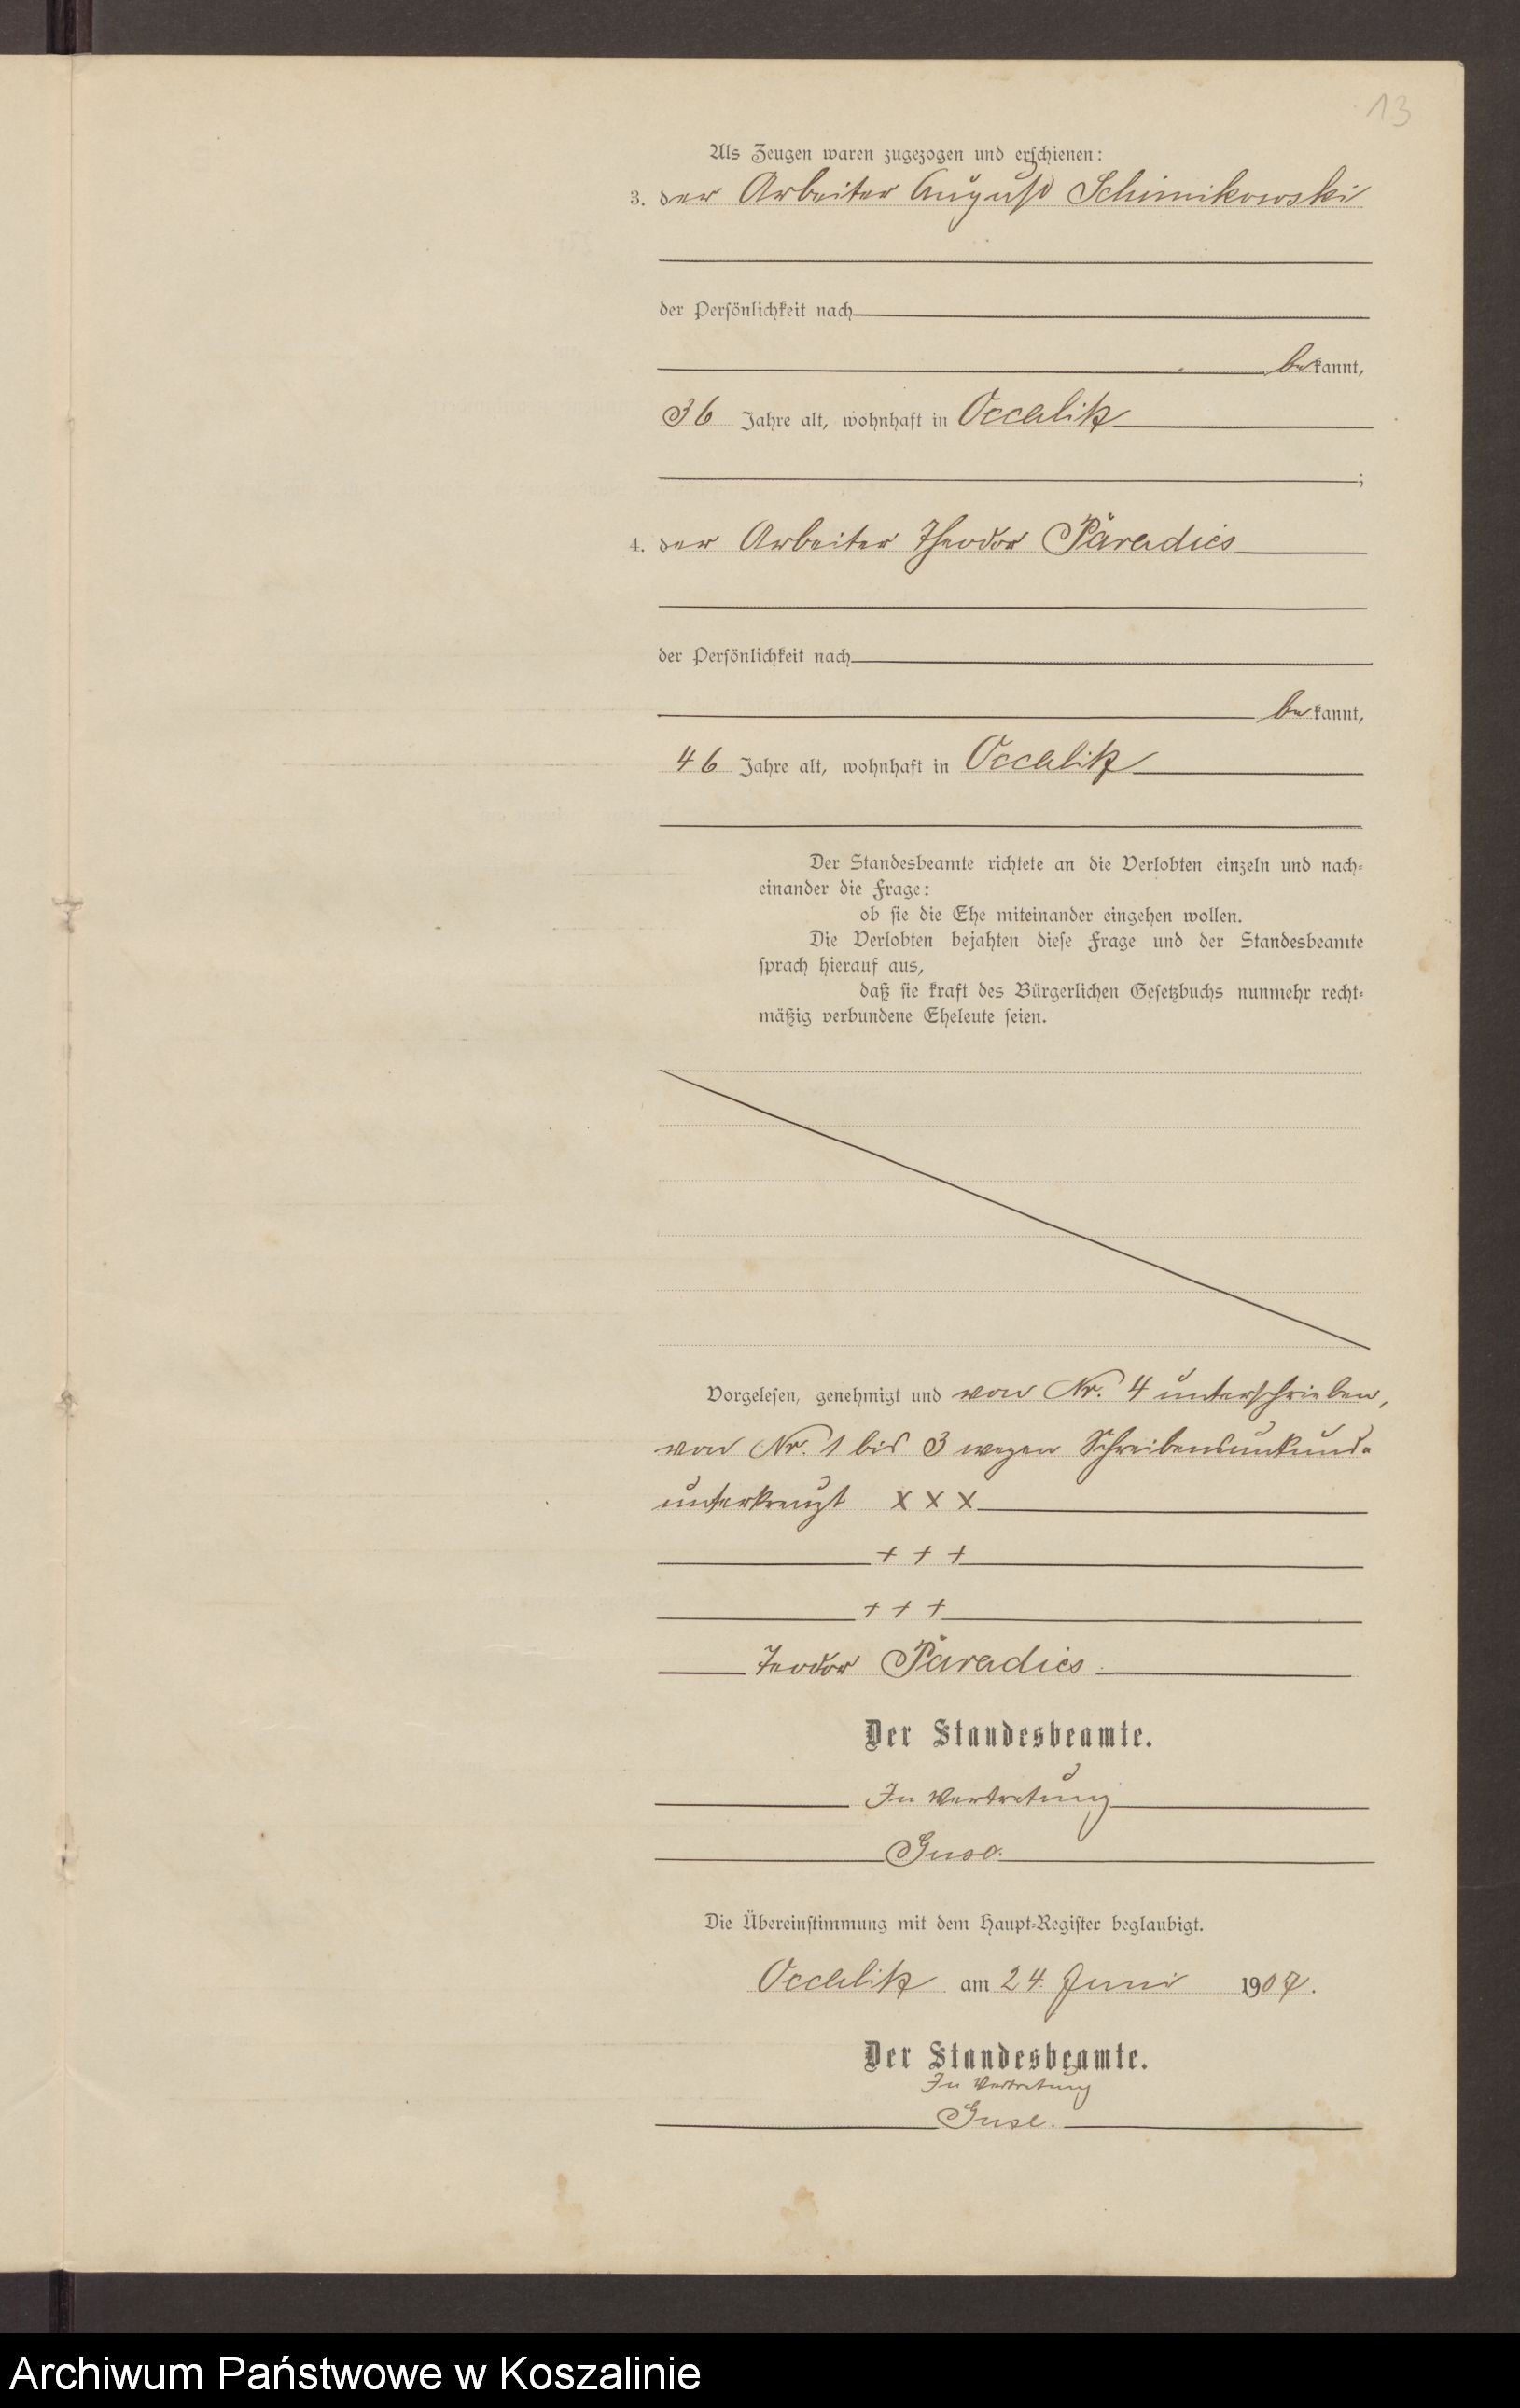 13
Als Zeugen waren zugezogen und erschienen:
3. der Arbeiter August Schimikowski
der Persönlichkeit nach
bekannt,
36 Jahre alt, wohnhaft in Occalitz
;
4. der Arbeiter Theodor Paradies
der Persönlichkeit nach
bekannt,
46 Jahre alt, wohnhaft in Occalitz
Der Standesbeamte richtete an die Verlobten einzeln und nach-
einander die Frage:
ob sie die Ehe miteinander eingehen wollen.
Die Verlobten bejahten diese Frage und der Standesbeamte
sprach hierauf aus,
daß sie kraft des Bürgerlichen Gesetzbuchs nunmehr recht-
mäßig verbundene Eheleute seien.
Vorgelesen, genehmigt und von Nr. 4 unterschrieben,
von Nr. 1 bis 3 wegen Schreibensunkunde
unterkreuzt x x x
+ + +
+ + +
Teodor Paradies.
Der Standesbeamte.
In Vertretung
Guse.
Die Übereinstimmung mit dem Haupt-Register beglaubigt.
Occalitz am 24. Juni 1907.
Der Standesbeamte.
In Vertretung
Guse.
Archiwum Państwowe w Koszalinie